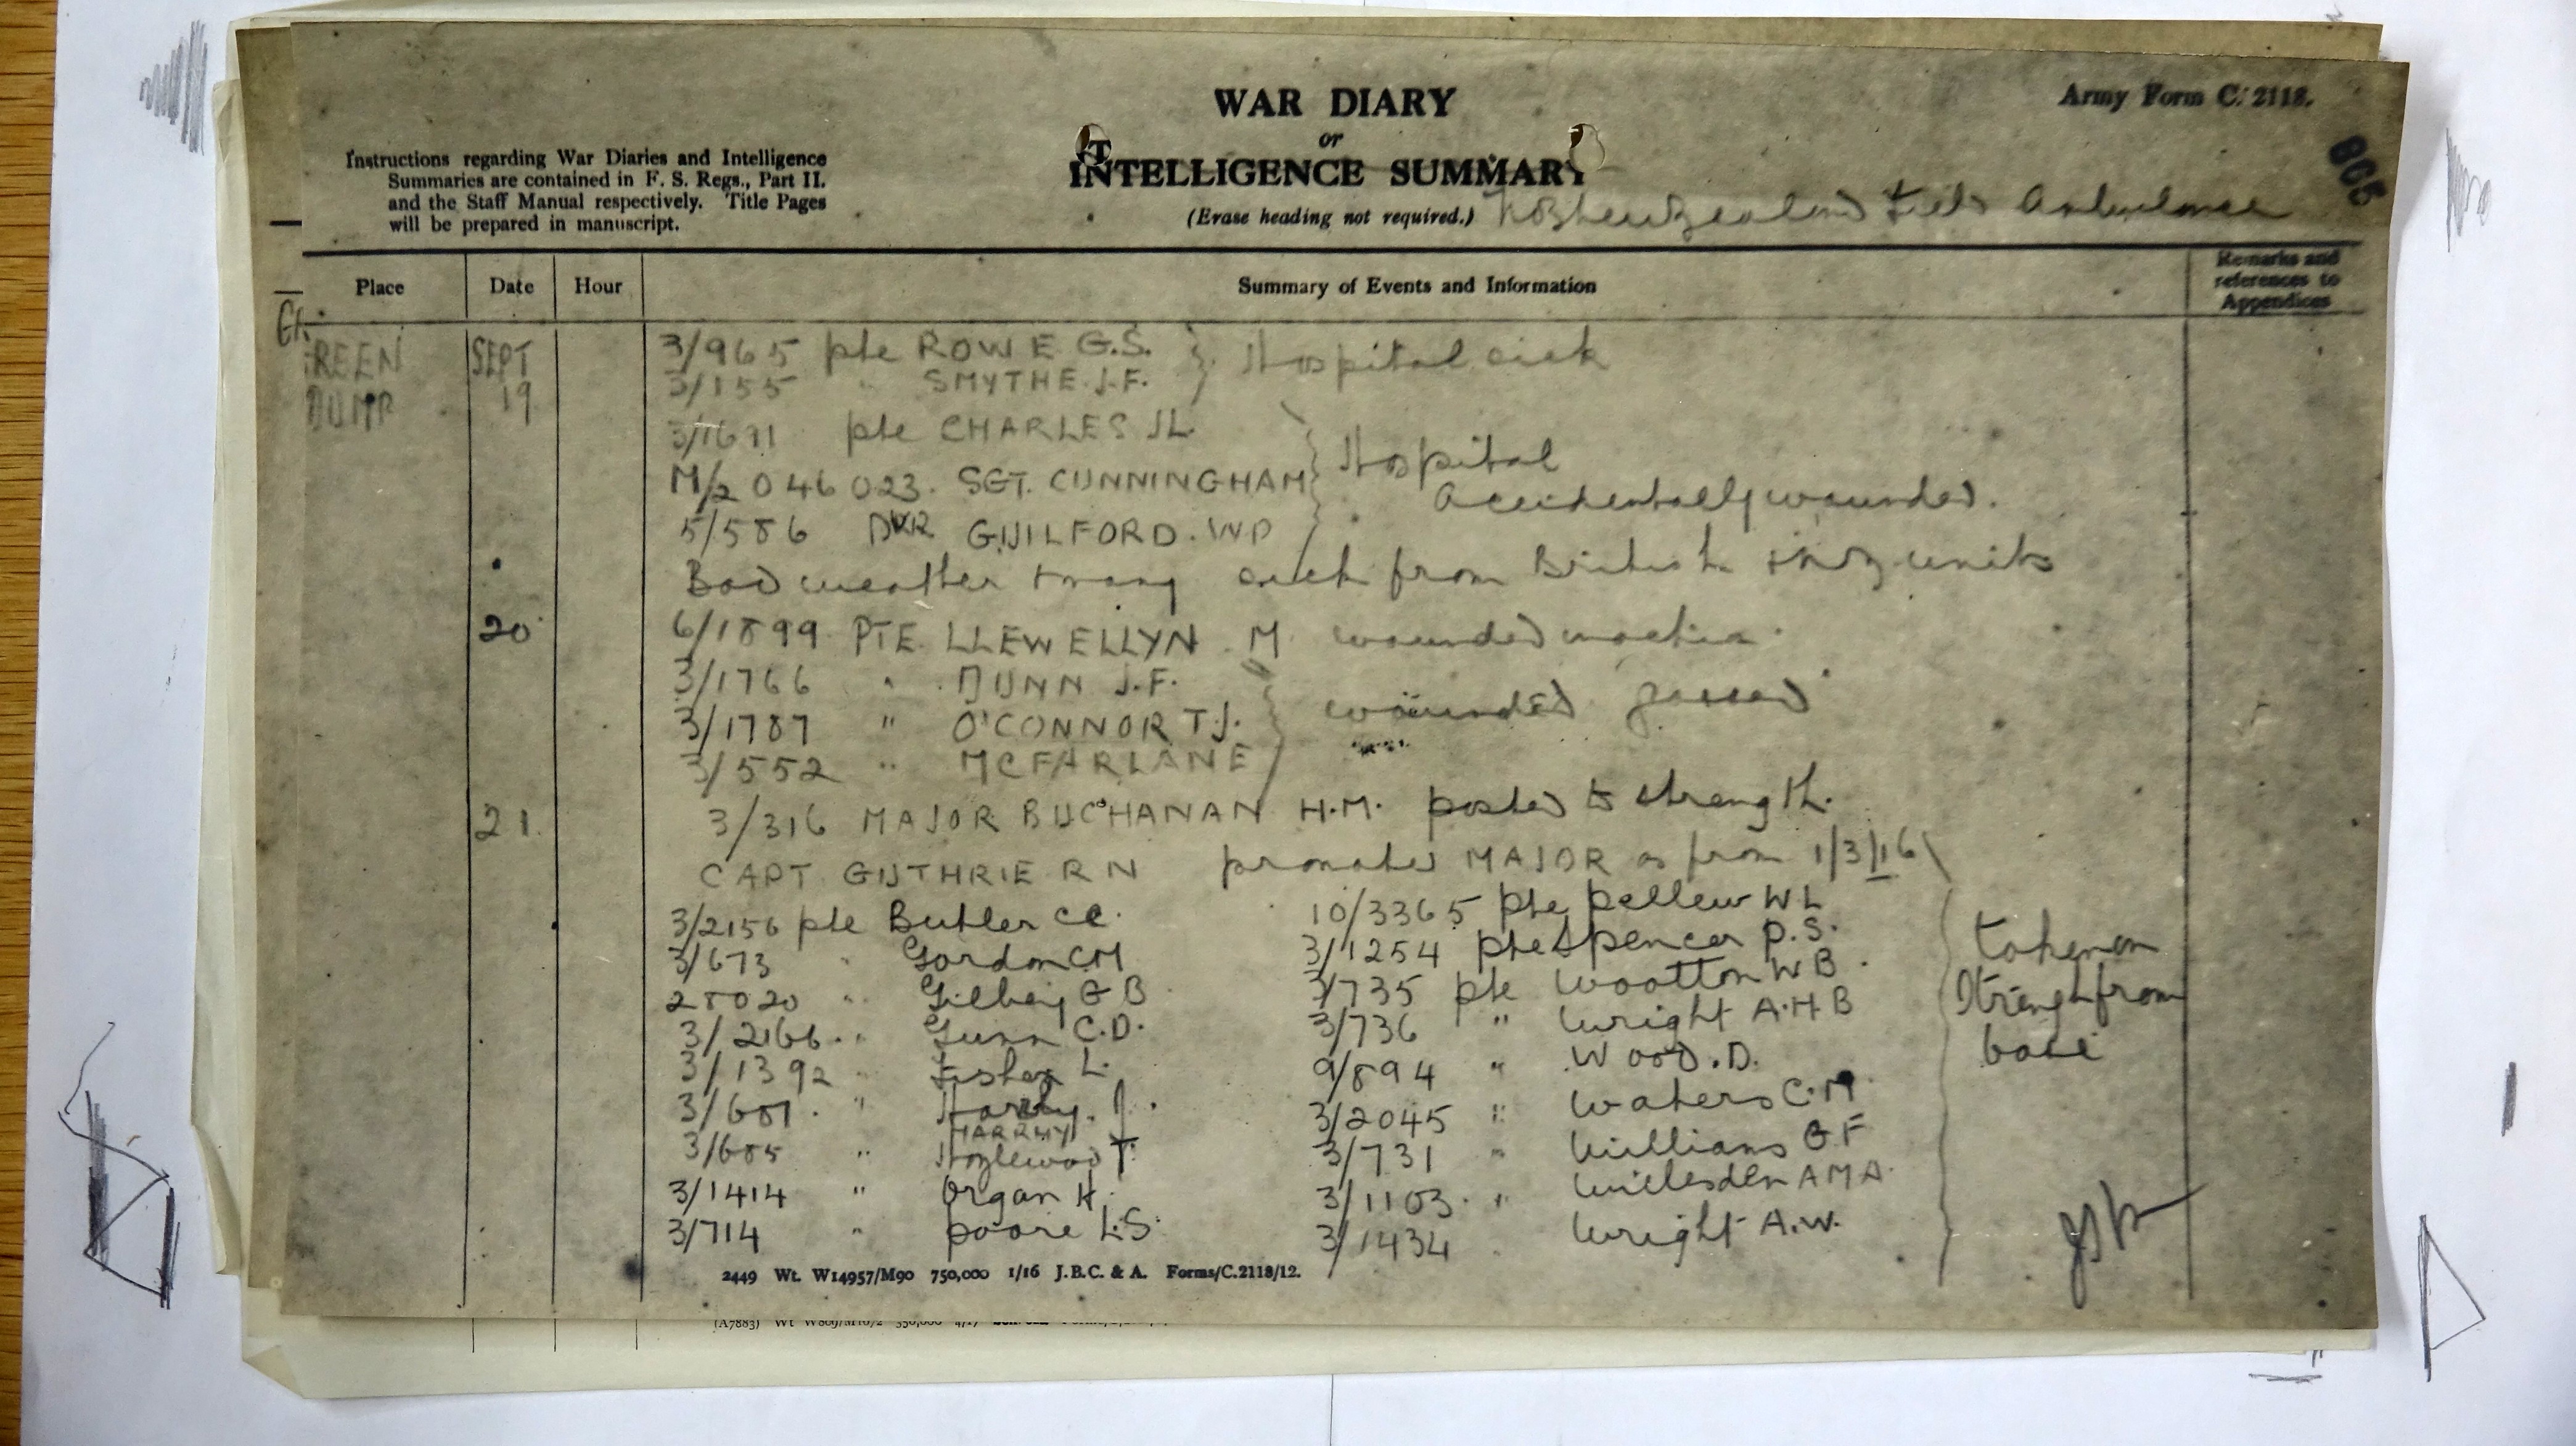 WAR DIARY
or
INTELLIGENCE SUMMARY
(Erase heading not required.)
Army Form C. 2118.
Instructions regarding War Diaries and Intelligence
Summaries are contained in F. S. Regs., Part II.
and the Staff Manual respectively. Title Pages
will be prepared in manuscript.
New Zealand Field Ambulance
Place Date Hour Summary of Events and Information Remarks and references to Appendices
GREEN DUMP SEPT 19 3/965 pte ROWE G.S. } Hospital sick
3/155 " SMYTHE J.F.
3/1691 pte CHARLES JL
M/2 046023. SGT. CUNNINGHAM } Hospital Accidentally wounded.
5/586 DVR GUILFORD. WP
Bad weather & many sick from British & NZ units
20 6/1899 PTE LLEWELLYN. M wounded in action.
3/1766 " DUNN J.F.
3/1787 " O'CONNOR T.J. } wounded gassed
3/552 " MCFARLANE
21. 3/316 MAJOR BUCHANAN H.M. posted to strength.
CAPT GUTHRIE R N promoted MAJOR as from 1/3/16
3/2156 pte Butler CC. 10/3365 pte pellew W L
3/673 " Gordon CM 3/1254 pte Spencer P.S.
28020 " Gilbey G B 3/735 pte Wootton W B.
3/2166. " Gunn C.D. 3/736 " Wright A.H.B
3/1392 " Fisher L. 9/894 " Wood. D.
3/681. " Hardy. J. 3/2045 " Waters C.M
HARRHY
3/685 " Hazlewood T. 3/731 " Williams G F
3/1414 " Organ H. 3/1103. " Willesden A M A.
3/714 " poore L.S. 3/1434 Wright A.W.
taken on
Strength from
base
2449 Wt. W14957/M90 750,000 1/16 J.B.C. & A. Forms/C.2118/12.